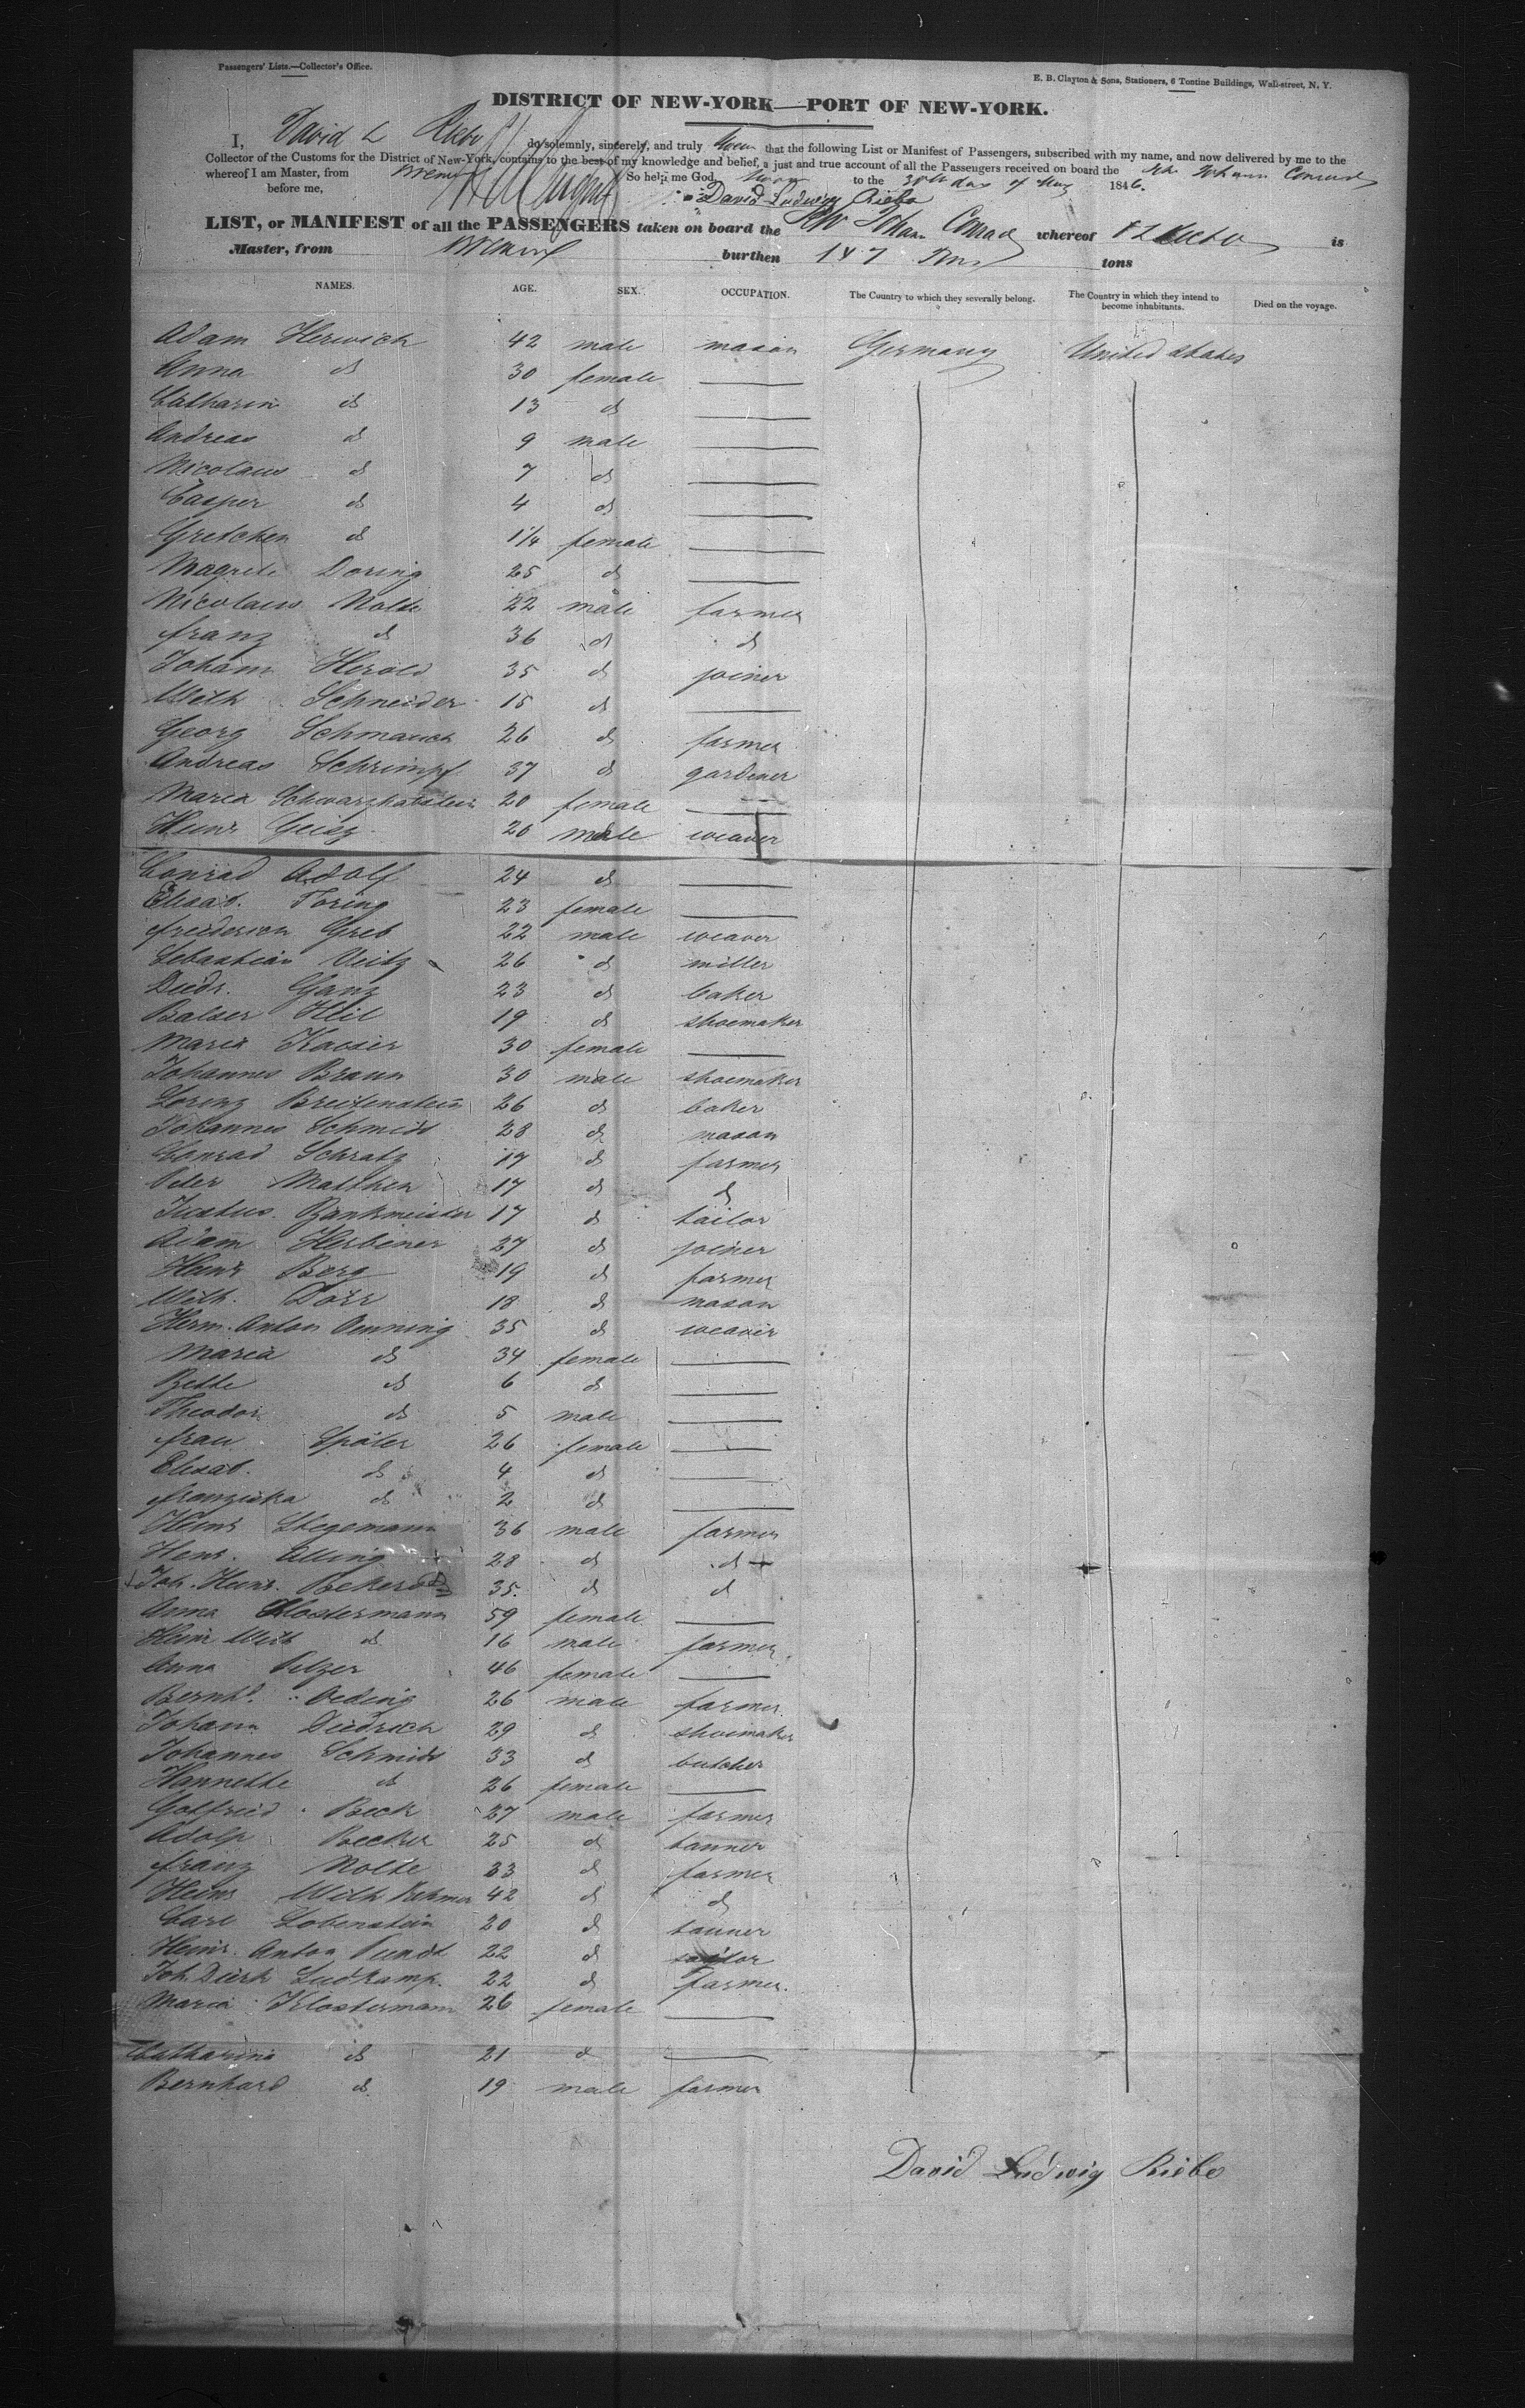 Passengers' Lists.—Collector's Office.
E. B. Clayton & Sons, Stationers, 6 Tontine Buildings, Wall-street, N. Y.
DISTRICT OF NEW-YORK—PORT OF NEW-YORK.
I, David L do solemnly, sincerely, and truly that the following List or Manifest of Passengers, subscribed with my name, and now delivered by me to the
Collector of the Customs for the District of New-York, contains to the best of my knowledge and belief, a just and true account of all the Passengers received on board the Johann Conrad
whereof I am Master, from So help me God. to the 30th day of May 1846.
before me, David Ludwig
LIST, or MANIFEST of all the PASSENGERS taken on board the Johann Conrad whereof is
Master, from burthen 147 tons
NAMES. AGE. SEX. OCCUPATION. The Country to which they severally belong. The Country in which they intend to become inhabitants. Died on the voyage.
Adam Herwich 42 male mason Germany United States
Anna do 30 female —
Catharin do 13 do —
Andreas do 9 male —
Nicolaus do 7 do —
Casper do 4 do —
Gretchen do 1¼ female —
Magrete Doring 25 do —
Nicolaus Nolte 22 male farmer
franz do 36 do do
Joham Herold 35 do joiner
Wilh Schneider 15 do —
Georg Schmauch 26 do farmer
Andreas Schrimpf 37 do gardener
Maria 20 female —
Heinr Geisz 20 male weaver
Conrad Adolf 24 do —
Elisab. Toring 23 female —
friederich Greb 22 male weaver
Sebastian Veitz 26 do miller
Diedr. Ganz 23 do baker
Balser Heil 19 do shoemaker
Maria Kaeser 30 female —
Johannes Braun 30 male shoemaker
Lorenz Breitenstein 26 do baker
Johannes Schmidt 28 do mason
Conrad Schratz 17 do farmer
Peter Matthew 17 do do
Justus Bankmeister 17 do tailor
Adam Herbener 27 do joiner
Heinr Berg 19 do farmer
Wilh. Dörr 18 do mason
Herm. Anton Oenning 35 do weaver
Maria do 34 female —
Bette do 6 do —
Theodor do 5 male —
frau Späler 26 female —
Elisab. do 4 do —
franziska do 2 do —
Heinr Stegemann 36 male farmer
Henr. Elling 28 do do
Joh. Heinr. 35. do do
Anna Klostermann 59 female —
Heinr Wilh do 16 male farmer
Anna Pelzer 46 female —
Bernhd. Oeding 26 male farmer
Johann Diedrich 29 do shoemaker
Johannes Schmidt 33 do butcher
Hannette do 26 female —
Gottfried Beck 27 male farmer
Adolp Becker 25 do tanner
franz Nolte 33 do farmer
Heinr Wilh Rehmer 42 do do
Carl Lobenstein 20 do tanner
Heinr. Anton Pundt 22 do
Joh. Dierk Sudkamp. 22 do farmer.
Maria Klostermann 26 female —
Catharina do 21 do —
Bernhard do 19 male farmer
David Ludwig